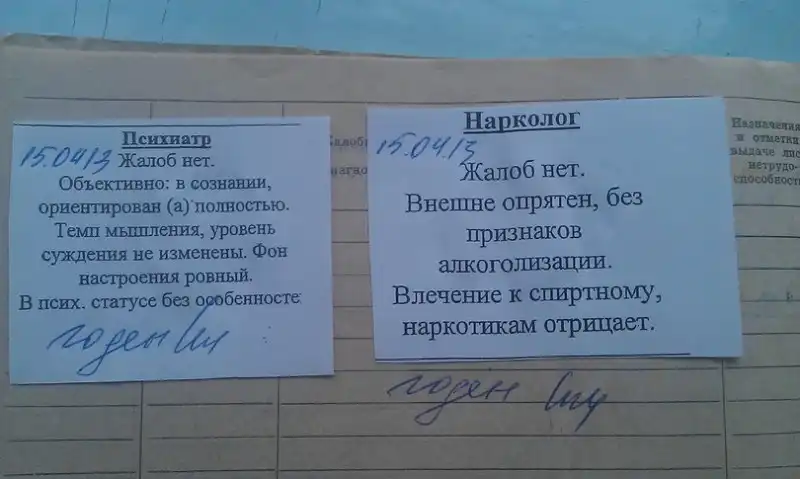 Психиатр
15.04.13 Жалоб нет.
Объективно: в сознании,
ориентирован (а) полностью.
Темп мышления, уровень
суждения не изменены. Фон
настроения ровный.
В псих. статусе без особенносте
годен
Нарколог
15.04.13
Жалоб нет.
Внешне опрятен, без
признаков
алкоголизации.
Влечение к спиртному,
наркотикам отрицает.
годен
Назначения
и отметки
выдаче лис
нетрудо-
способност